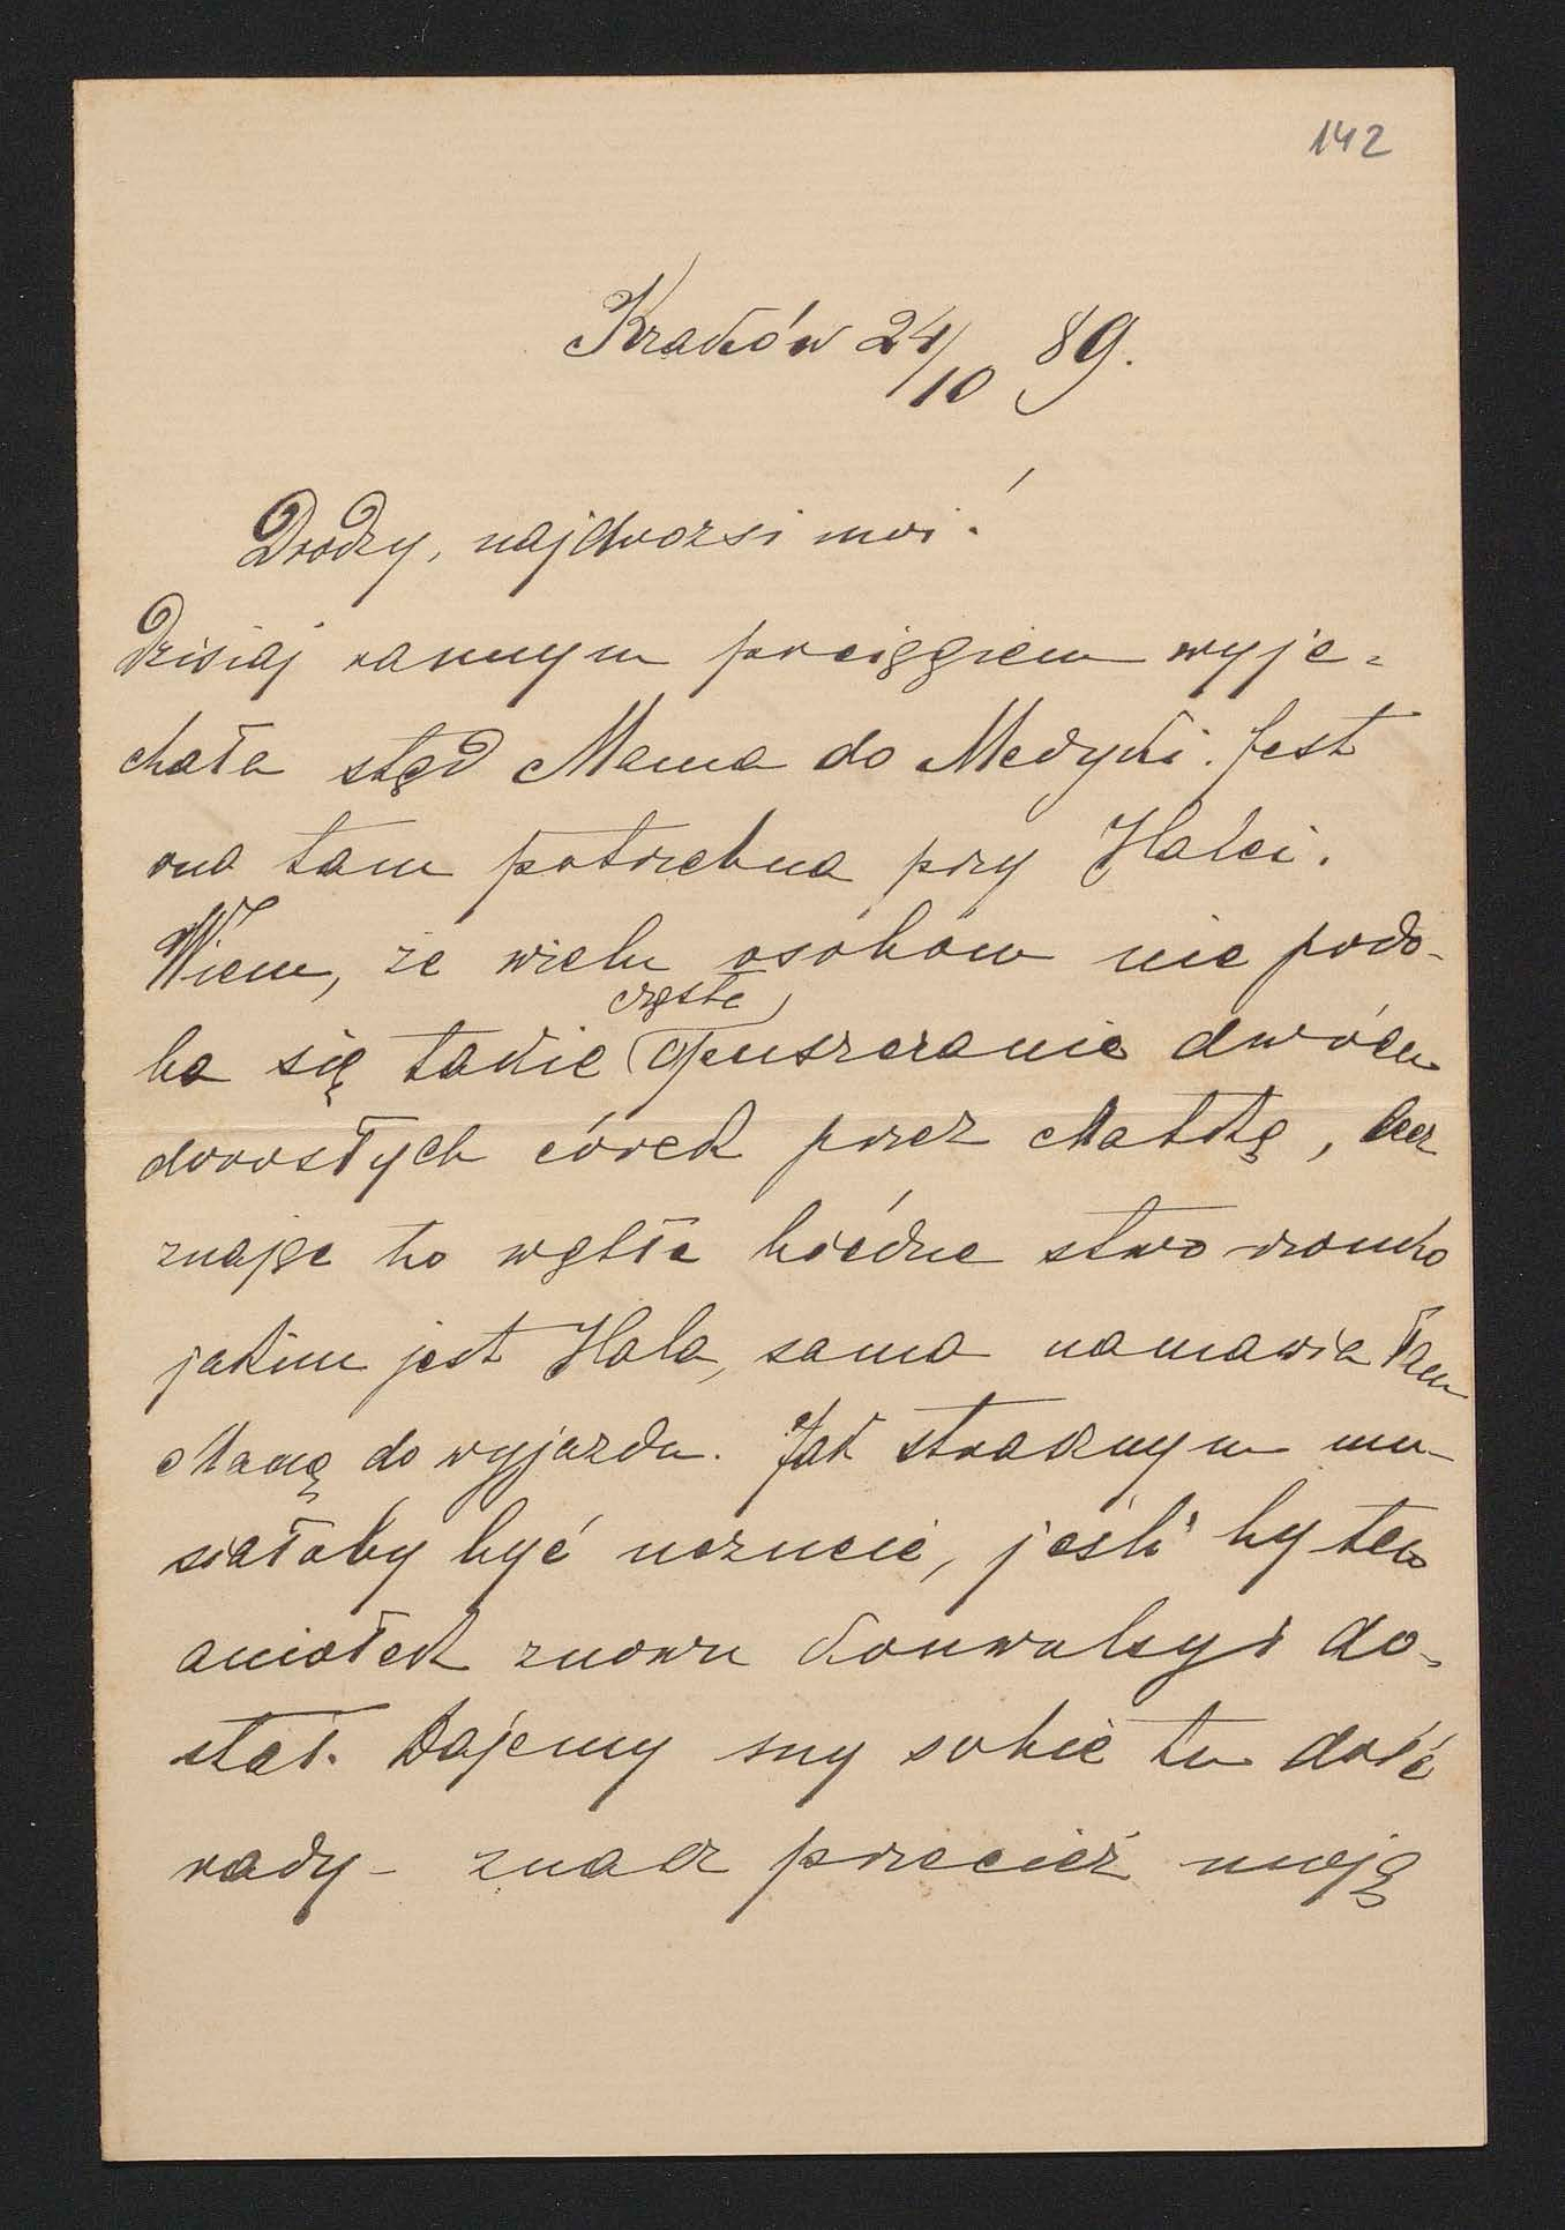 142
Kraków 24/10 89.
Drodzy, najdrożsi moi!
Dzisiaj rannym pociągiem wyje=
chała stąd Mama do Medyki. Jest
ona tam potrzebna przy Halci.
Wiem, że wielu osobom nie podo-
częste
ba się takie opuszczanie dwóch
dorosłych córek przez Matkę, lecz
znając to wątłe biédne stworzonko
jakim jest Hala, sama namawiałam
Mamę do wyjazdu. Jak strasznym mu-
siałoby być uczucie, jeśli by ten
aniołek znowu konwulsyi do-
stał. Dajemy my sobie tu dość
rady – znasz przecież moją